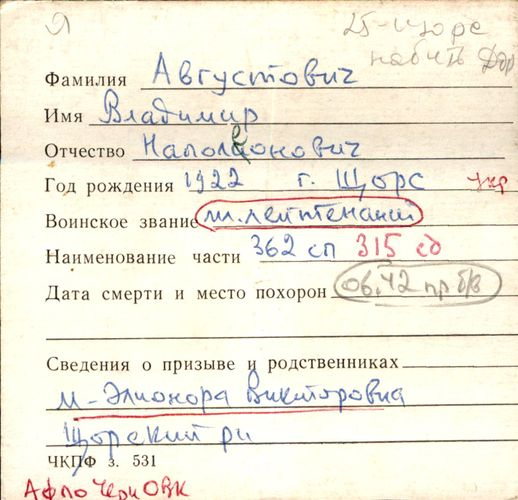 Я
25-Щорс
набить
Фамилия Августович
Имя Владимир
Отчество Наполеонович
Год рождения 1922 г. Щорс Укр
Воинское звание мл. лейтенант
Наименование части 362 сп 315 сд
Дата смерти и место похорон 06.42 пр б/в
Сведения о призыве и родственниках
м-Элионора Викторовна
Щорский р-н
ЧКПФ з. 531
Афпо Черн ОВК